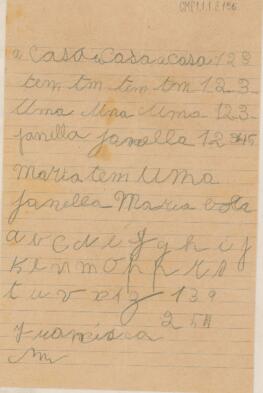 CMP1.1.2.196
a casa a casa a casa 123
tem tm tem tm 123
Uma Una Uma 123
janella janella 12345
Maria tem Uma
janella Maria bota
a b c d i f g h i j
k l n m o p p r s
t u v x z 139
Francisca 254